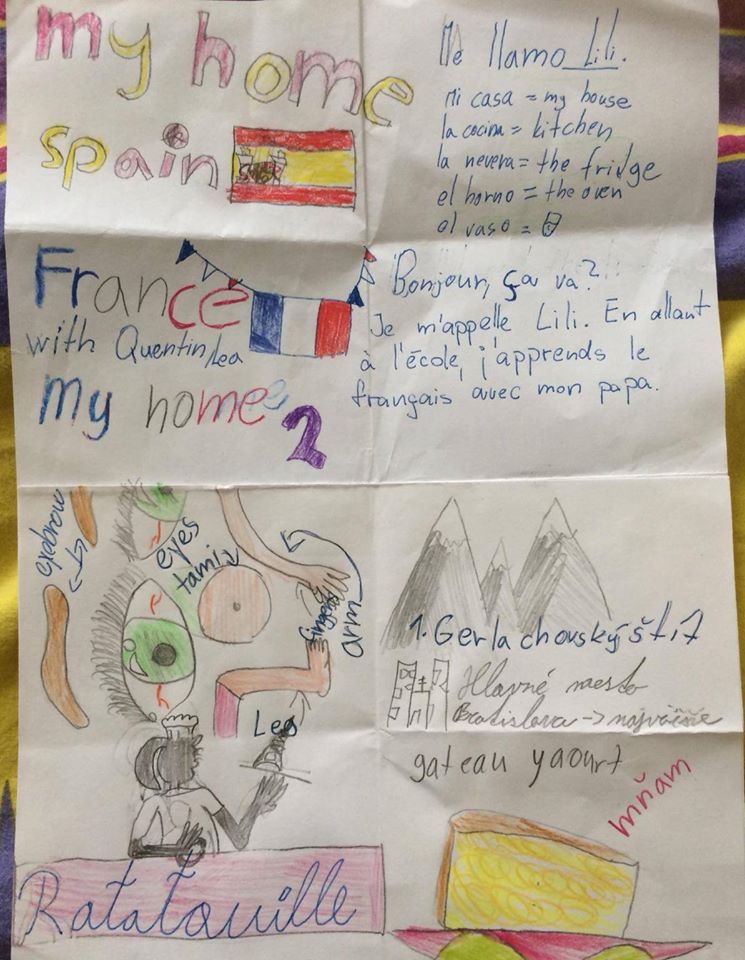 my home
spain
Me llamo Lili.
Mi casa = my house
la cocina = kitchen
la nevera = the fridge
el horno = the oven
el vaso =
France
with Quentin/Lea
my home 2
Bonjour, ça va?
Je m'appelle Lili. En allant
à l'école, j'apprends le
français avec mon papa.
eyebrow
eyes
tami
fingers
arm
Leg
Ratatouille
1. Gerlachovský štít
Hlavné mesto
Bratislava -> najväčšie
gateau yaourt
mňam